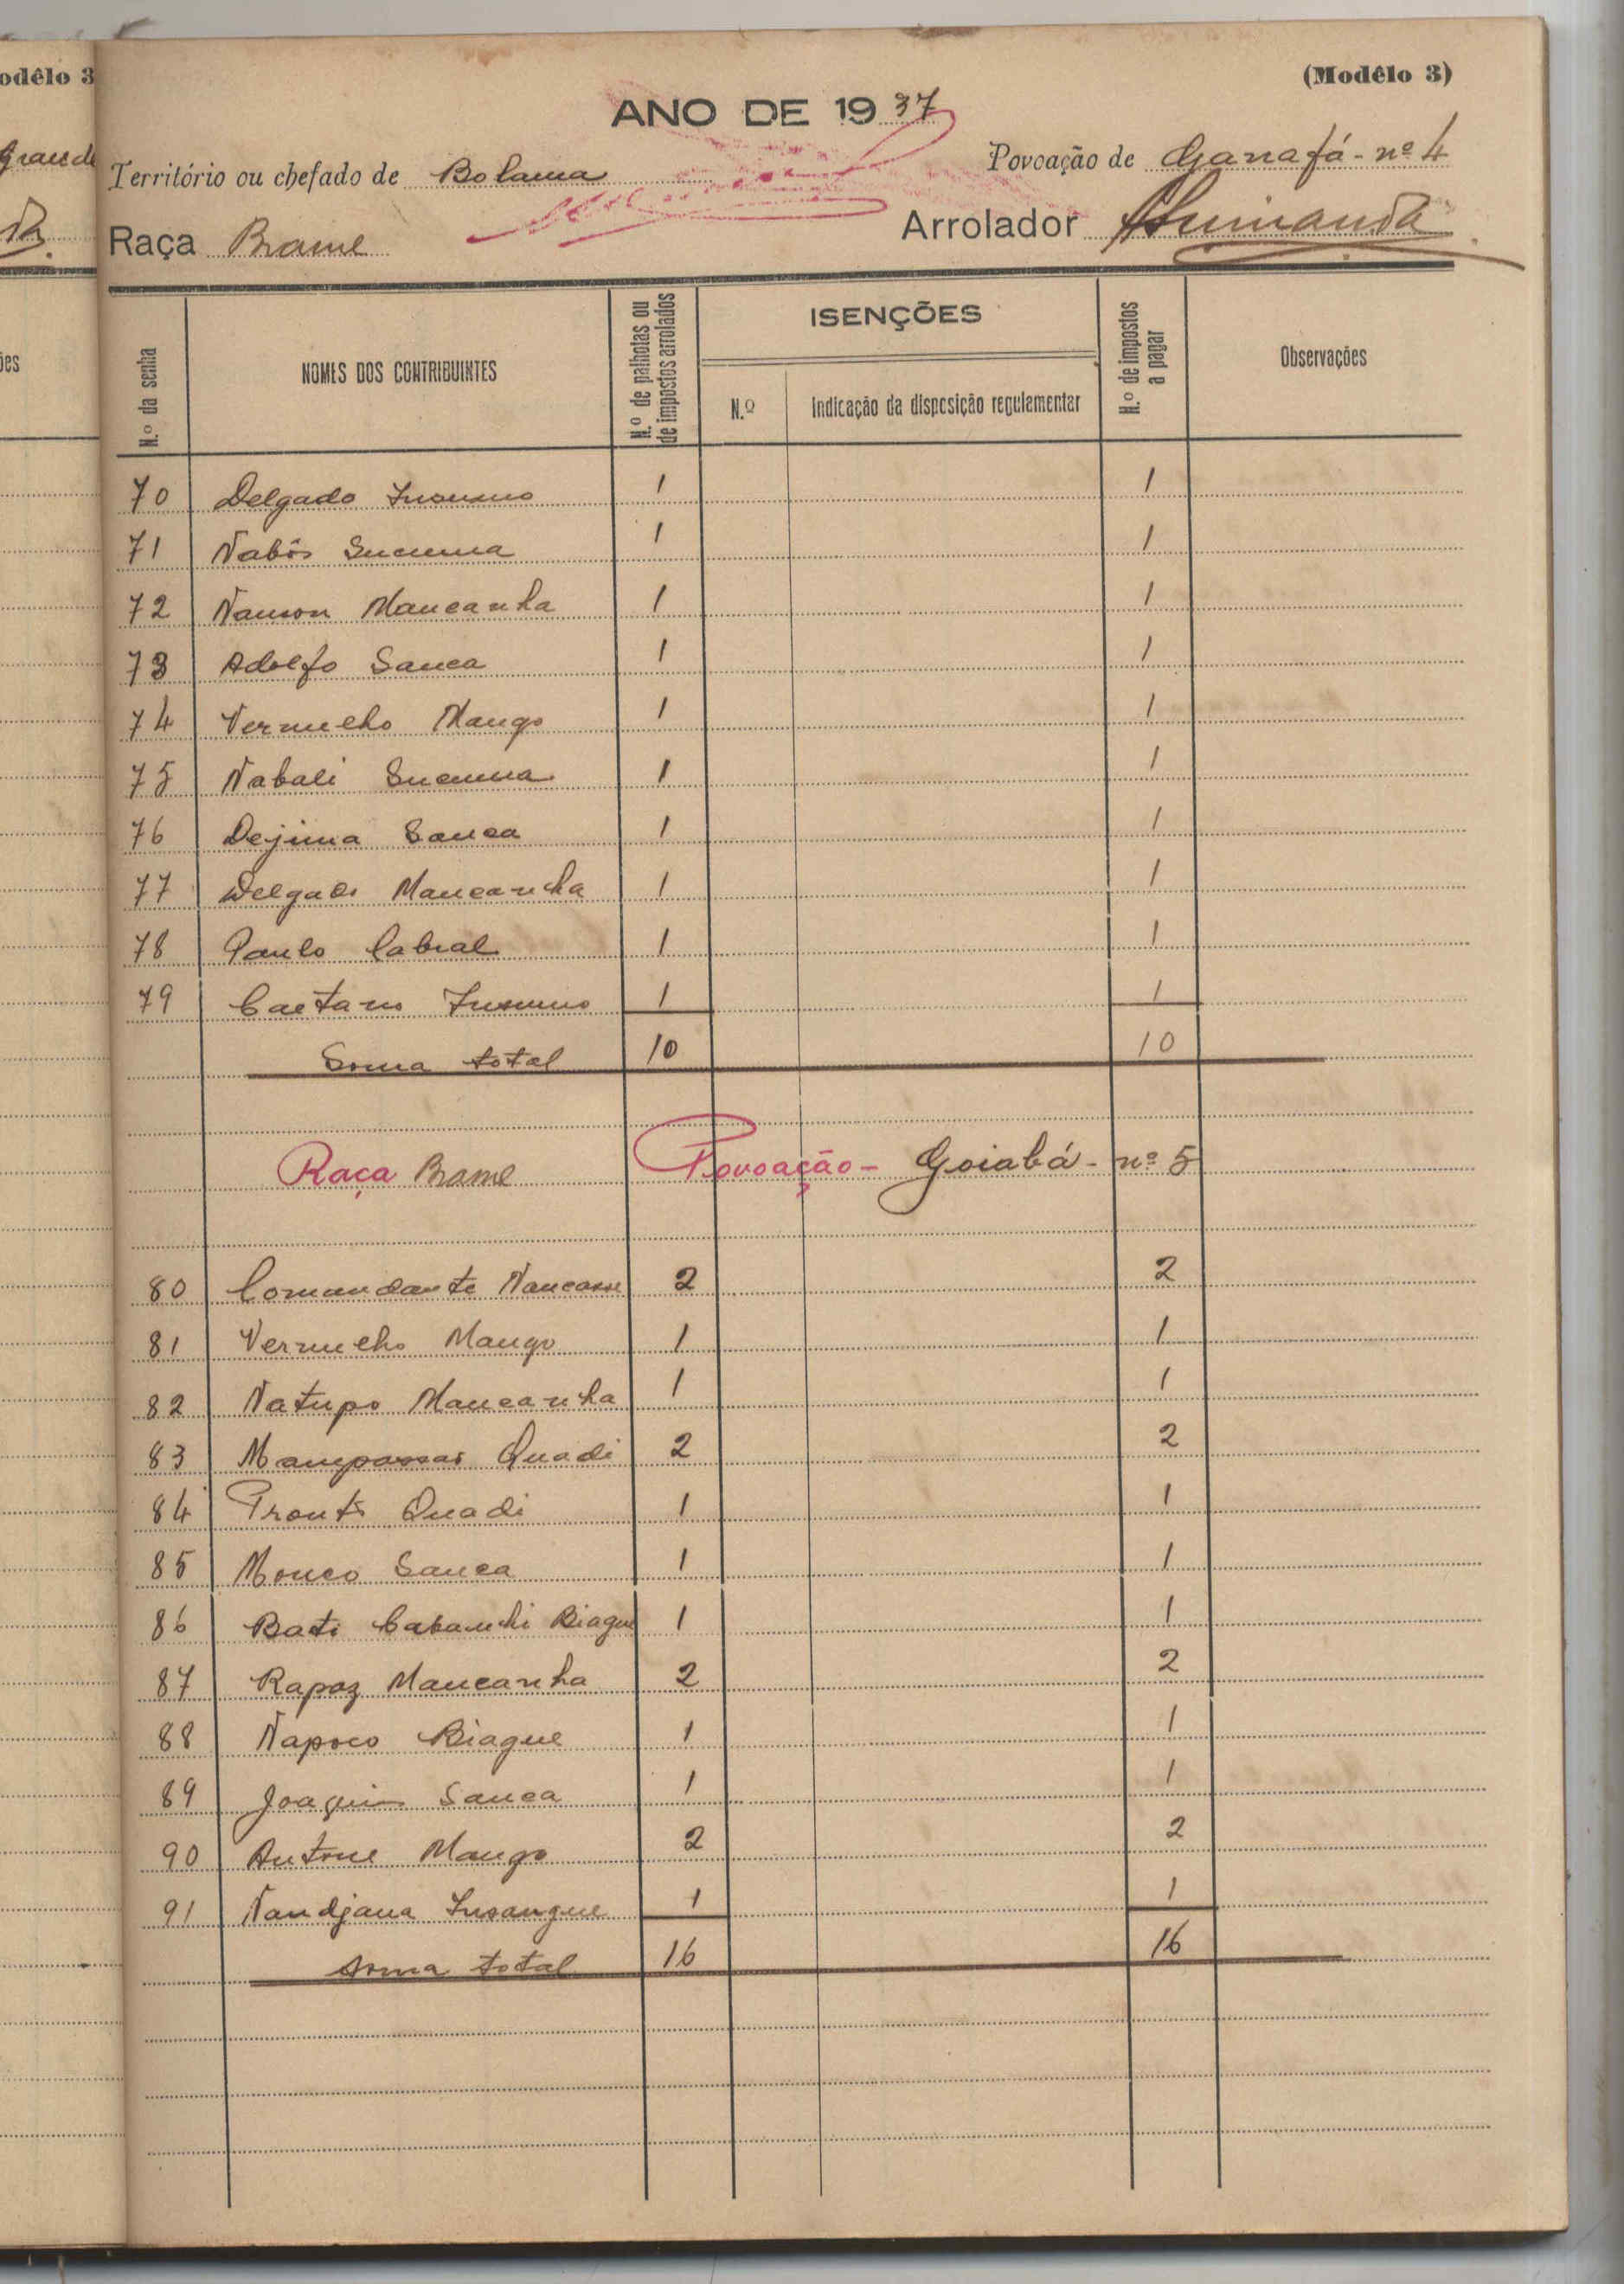 odêlo 3
Grande
ões
(Modêlo 3)
ANO DE 1937
Território ou chefado de Bolama
Povoação de Ganafá - nº 4
Raça Brame
Arrolador
N.º da senha
NOMES DOS CONTRIBUINTES
N.º de palhotas ou de impostos arrolados
ISENÇÕES
N.º
Indicação da disposição regulamentar
N.º de impostos a pagar
Observações
70 Delgado 1 1
71 Nabôs Sucuma 1 1
72 Namon Mancanha 1 1
73 Adolfo Sanca 1 1
74 Vermelho Mango 1 1
75 Nabali Sucuma 1 1
76 Dejima Sanca 1 1
77 Delgado Mancanha 1 1
78 Paulo Cabral 1 1
79 Caetano 1 1
Soma total 10 10
Raça Brame Povoação - Goiabá - nº 5
80 Comandante 2 2
81 Vermelho Mango 1 1
82 Natupo Mancanha 1 1
83 Quadi 2 2
84 Quadi 1 1
85 Mouco Sanca 1 1
86 Bati Biague 1 1
87 Rapaz Mancanha 2 2
88 Napoco Biague 1 1
89 Joaquim Sanca 1 1
90 Antone Mango 2 2
91 Nandjana Insangue 1 1
Soma total 16 16